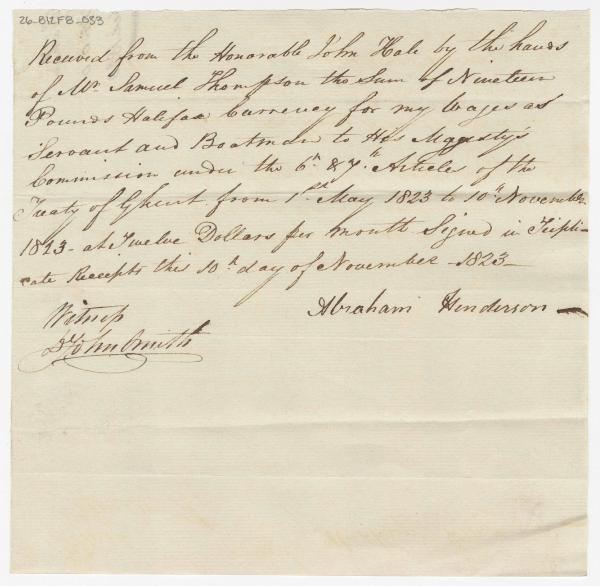 26-B12F8-033
Received from the Honorable John Hale by the hands
of Mr Samuel Thompson the Sum of Nineteen
Pounds Halifax Currency for my Wages as
Servant and Boatman to His Magesty's
Commission under the 6th & 7th Articles of the
Treaty of Ghent from 1st May 1823 to 10th November
1823 - at Twelve Dollars per month Signed in Tripli-
cate Receipts this 10th day of November - 1823 -
Abraham Henderson
Witness
John Smith